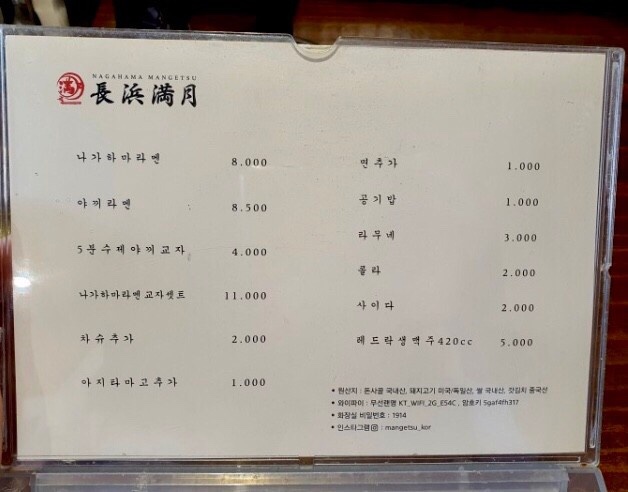 NAGAHAMA MANGETSU
長浜満月
나가하마라멘 8.000
야끼라멘 8.500
5분수제야끼교자 4.000
나가하마라멘교자셋트 11.000
차슈추가 2.000
아지타마고추가 1.000
면추가 1.000
공기밥 1.000
라무네 3.000
콜라 2.000
사이다 2.000
레드락생맥주420cc 5.000
• 원산지 : 돈사골 국내산, 돼지고기 미국/독일산, 쌀 국내산, 갓김치 중국산
• 와이파이 : 무선랜명 KT_WIFI_2G_E54C , 암호키 5gaf4fh317
• 화장실 비밀번호 : 1914
• 인스타그램 : mangetsu_kor